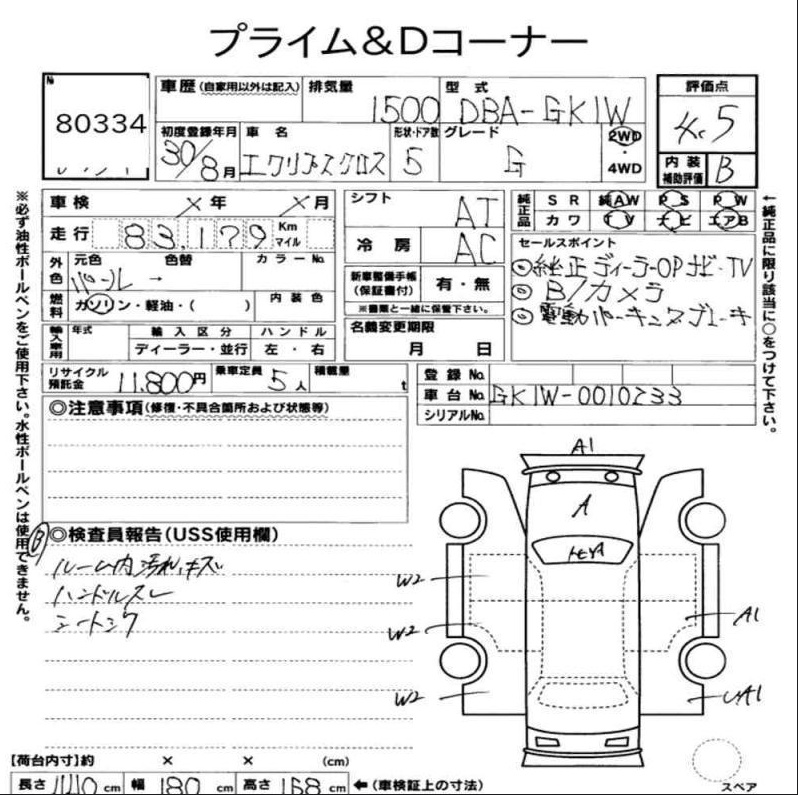 プライム&Dコーナー
№
80334
車歴(自家用以外は記入)
排気量
1500
型式
DBA-GK1W
評価点
4.5
内装補助評価
B
初度登録年月
30/8月
車名
エクリプスクロス
形状・ドア数
5
グレード
G
2WD
・
4WD
車検 ×年 ×月
走行 83,179 Km マイル
外色 元色 色替 カラーNo.
パール →
燃料 ガソリン・軽油・( )
内装色
輸入車用 年式 輸入区分 ハンドル
ディーラー・並行 左・右
リサイクル預託金 11,800円 乗車定員 5人 積載量 t
シフト AT
冷房 AC
新車整備手帳(保証書付) 有・無
※書類と一緒に保管下さい。
名義変更期限
月 日
純正品 SR 純AW PS PW
カワ TV ナビ エアB
セールスポイント
◎純正ディーラーOPナビ・TV
◎B/カメラ
◎電動パーキングブレーキ
登録No.
車台No. GK1W-0010233
シリアルNo.
※必ず油性ボールペンをご使用下さい。水性ボールペンは使用できません。
←純正品に限り該当に○をつけて下さい。
◎注意事項(修復・不具合箇所および状態等)
B
◎検査員報告(USS使用欄)
ルーム内汚れ、キズ
ハンドルスレ
シートシワ
A1
A
W2
W2
A1
W2
UA1
スペア
【荷台内寸】約 × × (cm)
長さ 440 cm 幅 180 cm 高さ 168 cm ←(車検証上の寸法)